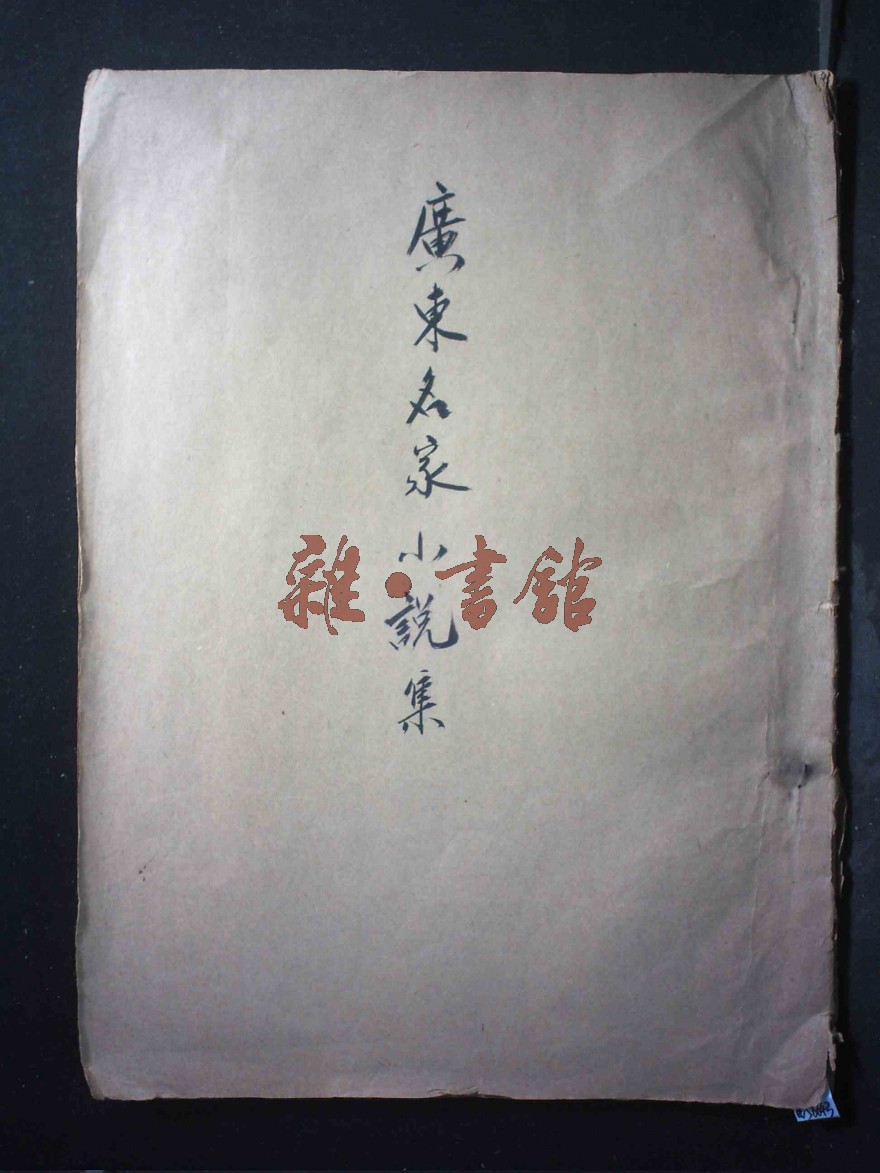 廣東名家小說集
雜·書館